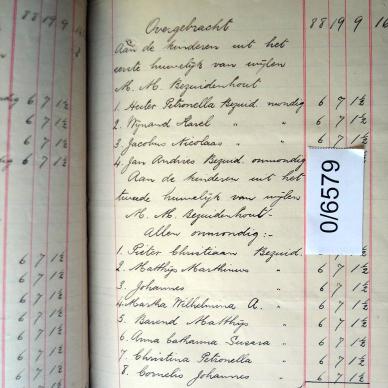 Overgebracht 88 19 9 16
Aan de kinderen uit het
eerste huwelijk van wijlen
M. M. Bezuidenhout
1. Hester Petronella Bezuid. mondig 6 7 1½
2. Wynand Karel " " 6 7 1½
3. Jacobus Nicolaas " " 6 7 1½
4. Jan Andries Bezuid onmondig 6 7 1½
Aan de kinderen uit het
tweede huwelijk van wijlen
M. M. Bezuidenhout-
Allen onmondig:-
1. Pieter Christiaan Bezuid. 6 7 1½
2. Matthijs Marthinus " 6 7 1½
3. Johannes " 6 7 1½
4. Martha Wilhelmina A. " 6 7 1½
5. Barend Matthijs " 6 7 1½
6. Anna Catharina Susara " 6 7 1½
7. Christina Petronella " 6 7 1½
8. Cornelis Johannes " 6 7 1½
0/6579
88 19 9
6 7 1½
6 7 1½
6 7 1½
6 7 1½
6 7 1½
6 7 1½
6 7 1½
6 7 1½
6 7 1½
6 7 1½
6 7 1½
6 7 1½